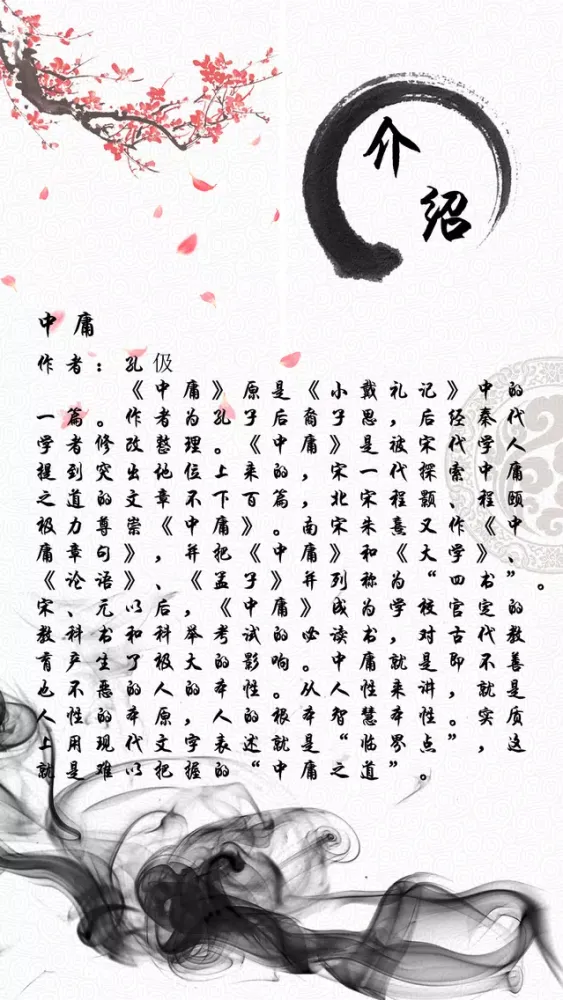 介
绍
中庸
作者：孔伋
《中庸》原是《小戴礼记》中的
一篇。作者为孔子后裔子思，后经秦代
学者修改整理。《中庸》是被宋代学人
提到突出地位上来的，宋一代探索中庸
之道的文章不下百篇，北宋程颢、程颐
极力尊崇《中庸》。南宋朱熹又作《中
庸章句》，并把《中庸》和《大学》、
《论语》、《孟子》并列称为“四书”。
宋、元以后，《中庸》成为学校官定的
教科书和科举考试的必读书，对古代教
育产生了极大的影响。中庸就是即不善
也不恶的人的本性。从人性来讲，就是
人性的本原，人的根本智慧本性。实质
上用现代文字表述就是“临界点”，这
就是难以把握的“中庸之道”。